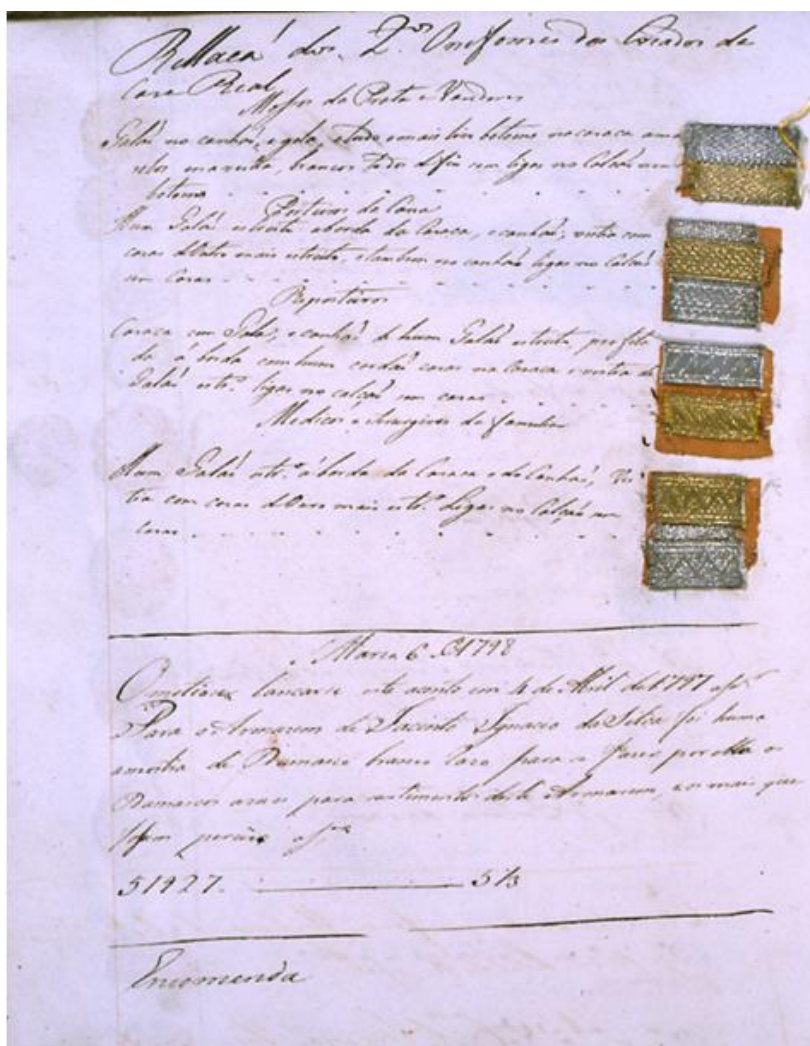 Rellaçaõ dos 2.os Oniformes dos Creados da
Caza Real
Mossos da Prata e
Galaõ no canhaõ, e gola, e tudo o mais liso botoens na cazaca ama
relos, em a vestia, brancos tudo ligas no Calçaõ sem
botoens
Porteiros da Cana
Hum Galaõ estreito a borda da Cazaca, e canhaõ; vestia com
mais estreito, e tambem no canhaõ ligas no Calçaõ
sem Cazas
Reposteiros
Cazaca com Gola, e canhaõ de hum Galaõ estreito, perfila
do á borda com hum cordaõ cazas na Cazaca e vestia de
Galaõ estr.o ligas no calçaõ sem cazas
Medicos e Surugioens da familia
Hum Galaõ estr.o á borda da Cazaca e do Canhaõ, Ves
tia com cazas mais estr.o Ligas no Calçaõ sem
cazas
Março 6 1798
Omitiose lancarse este acento em 4 de Abril de 1797
Para o Armazem de Jacinto Ignacio da Silva foi huma
amostra de Damasco branco para a Fabrica por ella o
Damascos para sortimento deste Armazem, e os mais que
forem percizos
51927. 5/3
Encomenda